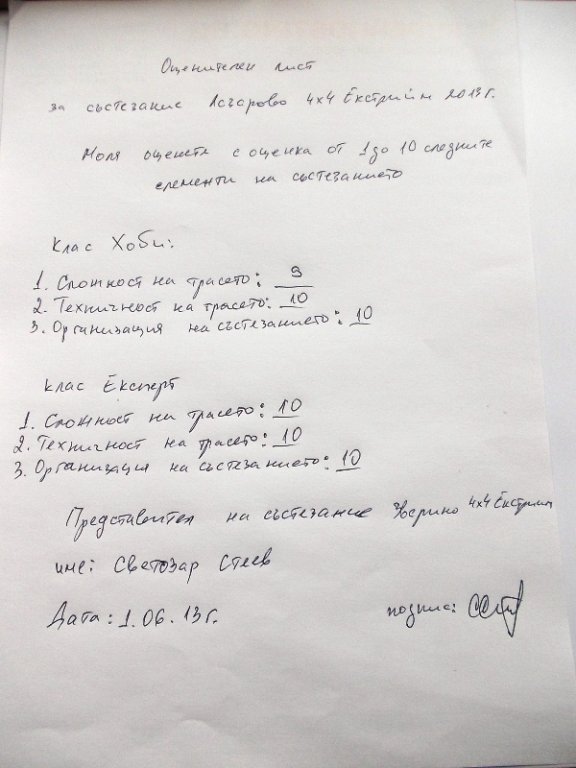 Оценителен лист
за състезание Лозарово 4x4 Екстрийм 2013г.
Моля оценете с оценка от 1 до 10 следните
елементи на състезанието
Клас Хоби:
1. Сложност на трасето: 9
2. Техничност на трасето: 10
3. Организация на състезанието: 10
клас Експерт
1. Сложност на трасето: 10
2. Техничност на трасето: 10
3. Организация на състезанието: 10
Представител на състезание Зверино 4x4 Екстрийм
име: Светозар Стеев
Дата: 1.06.13г. подпис: